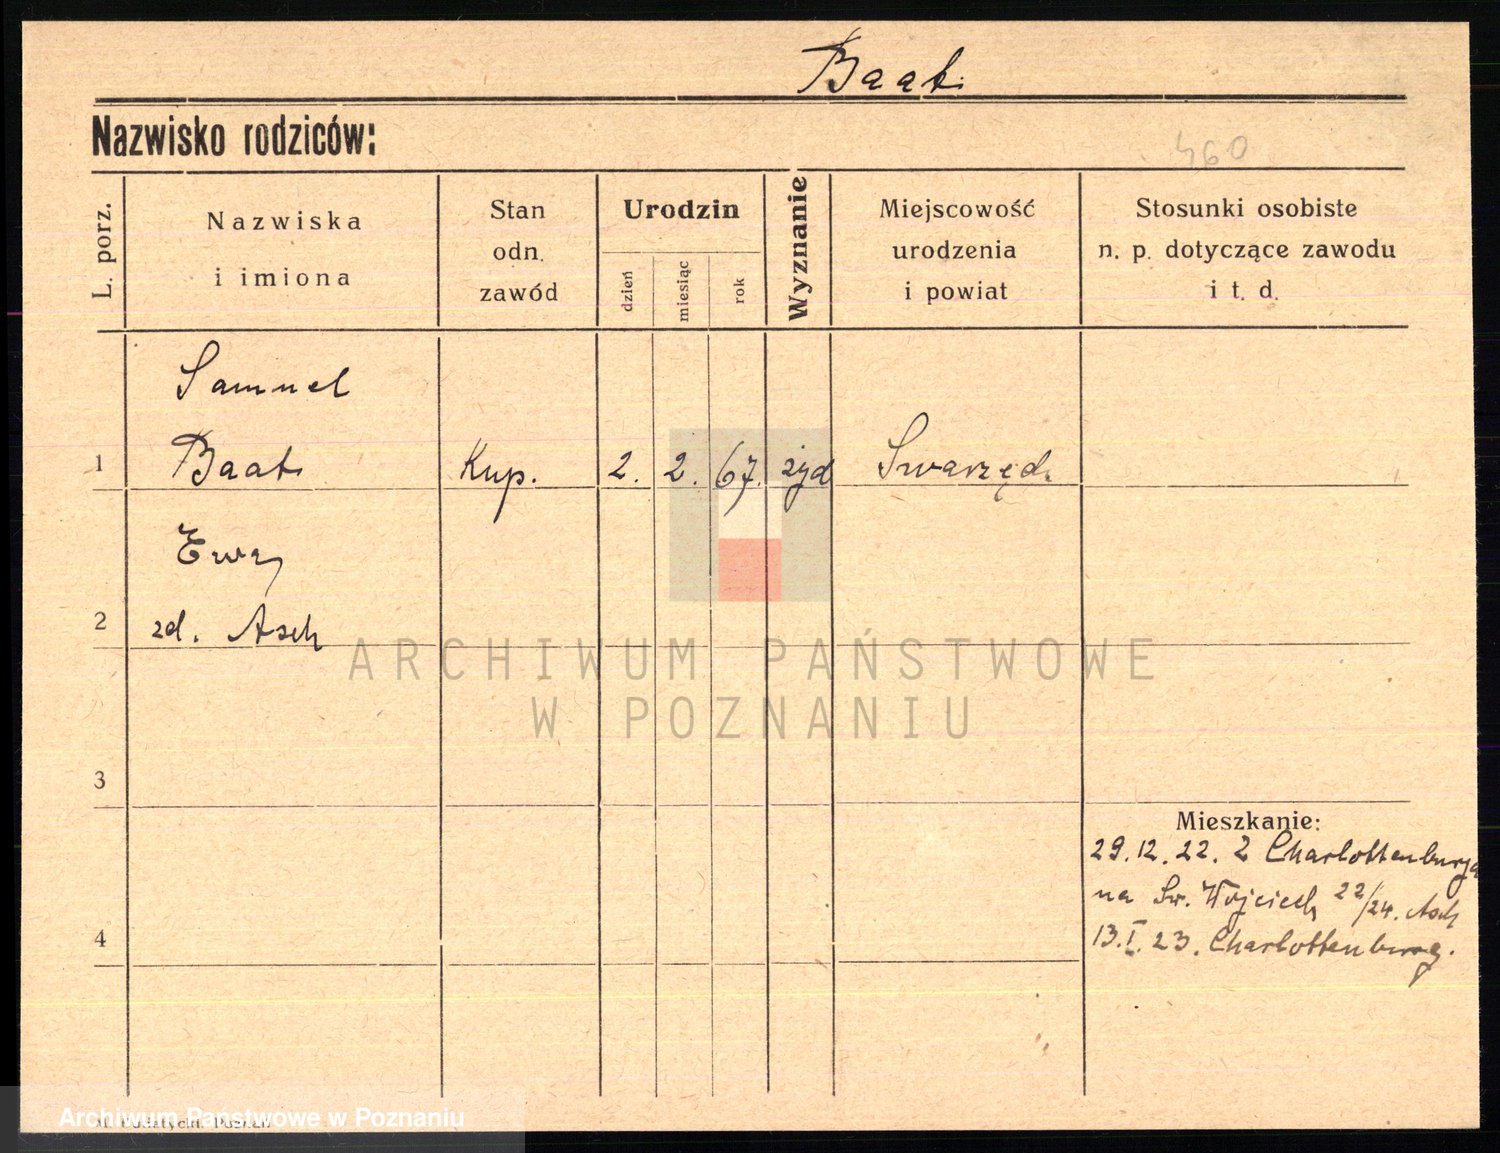 Baat
Nazwisko rodziców:
460
L. porz.
Nazwiska
i imiona
Stan
odn.
zawód
Urodzin
dzień
miesiąc
rok
Wyznanie
Miejscowość
urodzenia
i powiat
Stosunki osobiste
n. p. dotyczące zawodu
i t. d.
Samuel
1 Baat Kup. 2. 2. 67. żyd Swarzęd.
Ewa
2 zd. Asch
ARCHIWUM PAŃSTWOWE
W POZNANIU
3
Mieszkanie:
29.12.22. z Charlottenburga
na Św. Wojciech 22/24. Asch
4
13.I.23. Charlottenburg.
Archiwum Państwowe w Poznaniu
Poznań